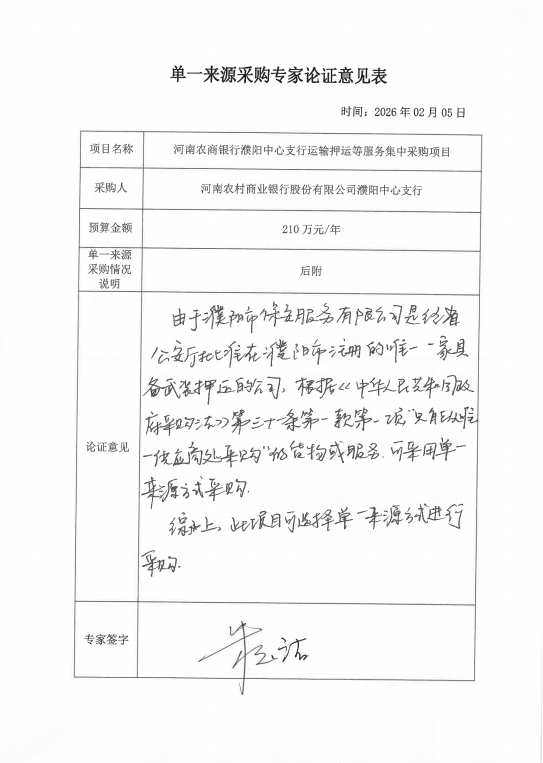 单一来源采购专家论证意见表
时间：2026 年 02 月 05 日
项目名称 河南农商银行濮阳中心支行运输押运等服务集中采购项目
采购人 河南农村商业银行股份有限公司濮阳中心支行
预算金额 210 万元/年
单一来源
采购情况
说明
后附
论证意见
由于濮阳市保安服务有限公司是经省
公安厅批准在濮阳市注册的唯一一家具
备武装押运的公司，根据《中华人民共和国政
府采购法》第三十一条第一款第一项“只能从唯
一供应商处采购”的货物或服务，可采用单一
来源方式采购.
综上，此项目可选择单一来源方式进行
采购.
专家签字